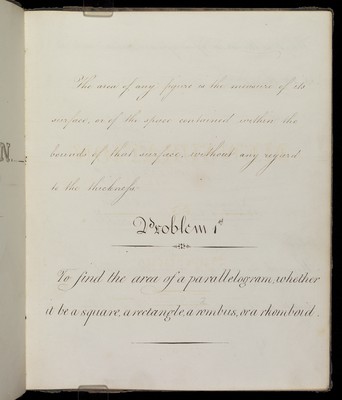 N.
The area of any figure is the measure of its
surface, or of the space contained within the
bounds of that surface, without any regard
to the thickness
Problem 1st
To find the area of a parallelogram, whether
it be a square, a rectangle, a rombus, or a rhomboid.